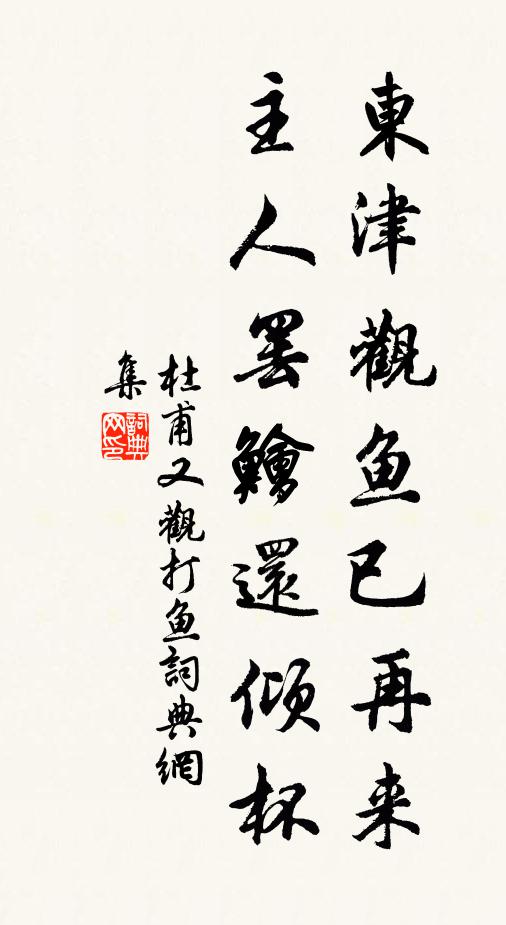 東津觀魚已再来
主人罢鱠還傾杯
杜甫又觀打魚詞典網
集
詞典網印